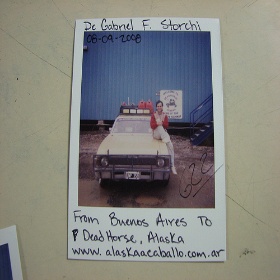 De Gabriel F. Storchi
08-09-2008
From Buenos Aires To
Dead Horse, Alaska
www.alaskaacaballo.com.ar